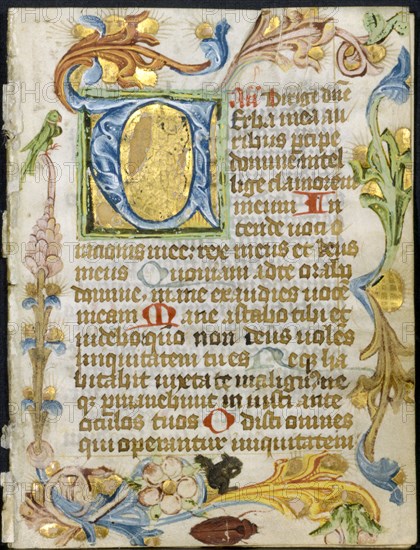 An̄ Dirige dn̄e
Erba mea au
ribus percipe
domine intel
lige clamorem
meum In
tende voci o
rationis mee: rex meus et deus
meus Quoniam ad te orabo
domine mane exaudies vocē
meam Mane astabo tibi et
videbo quo non deus volēs
iniquitatem tu es Neq; ha
bitabit iuxta te malign9 ne
q; pmanebunt iniusti ante
oculos tuos Odisti omnes
qui operantur iniquitatem